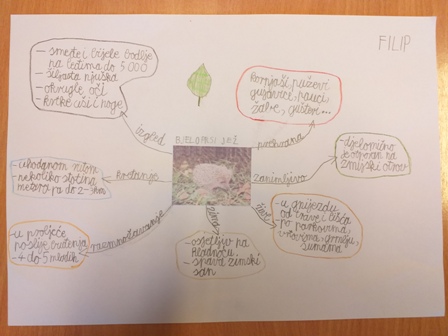 FILIP
- smeđe i bijele bodlje
na leđima do 5000
- šiljasta njuška
- okrugle oči
- kratke uši i noge
izgled
BJELOPRSI JEŽ
kornjaši, puževi
gujavici, pauci,
žabe, gušteri...
prehrana
- djelomično
je otporan na
zmijski otrov
zanimljivo
- uhodanom ritom
- nekoliko stotina
metara pa do 2-3km
kretanje
- u gnijezdu
od trave i lišća
po parkovima,
vrtovima, grmlju,
šumama
- osjetljiv na
hladnoću
- spava zimski
san
zima
- u proljeće
poslije buđenja
- 4 do 5 mladih
razmnožavanje